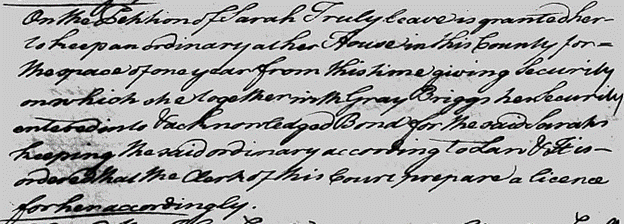 On the Petition of Sarah Truly leave is granted her
to keep an ordinary at her House in this County for =
the space of one year from this time giving Security
on which she together with Gray Briggs her Security
entered into & acknowledged Bond for the said Sarahs
keeping the said ordinary according to Law & it is
ordered that the Clerk of this Court prepare a licence
for her accordingly.